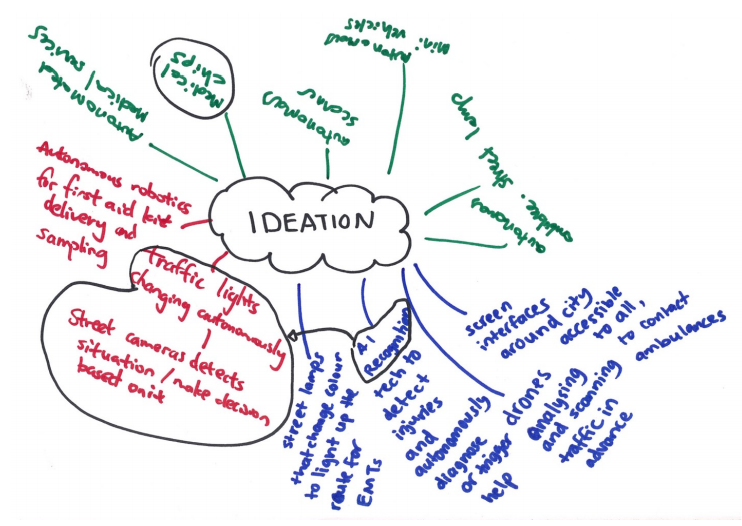 IDEATION
Autonomated
Medical services
Medical
chips
autonomous
scaner
Autonomous
mini vehicles
street lamp.
autonomous
Autonomous robotics
for first aid kit
delivery and
sampling
traffic lights
changing autonomously
Street cameras detects
situation / make decision
based on it
street lamps
that change colour
to light up the
route for
EMTs
A.I
Recognition
tech to
detect
injuries
and
autonomously
diagnose
or trigger
help
drones
Analysing
and scanning
traffic in
advance
screen
interfaces
around city
accessible
to all,
to contact
ambulances